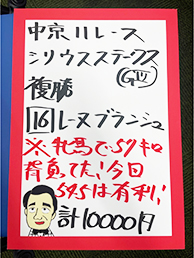 中京11レース
シリウスステークス
GⅢ
複勝
16 レーヌブランシュ
※牝馬で57キロ
背負ってた!今回
54.5は有利!
計10000円